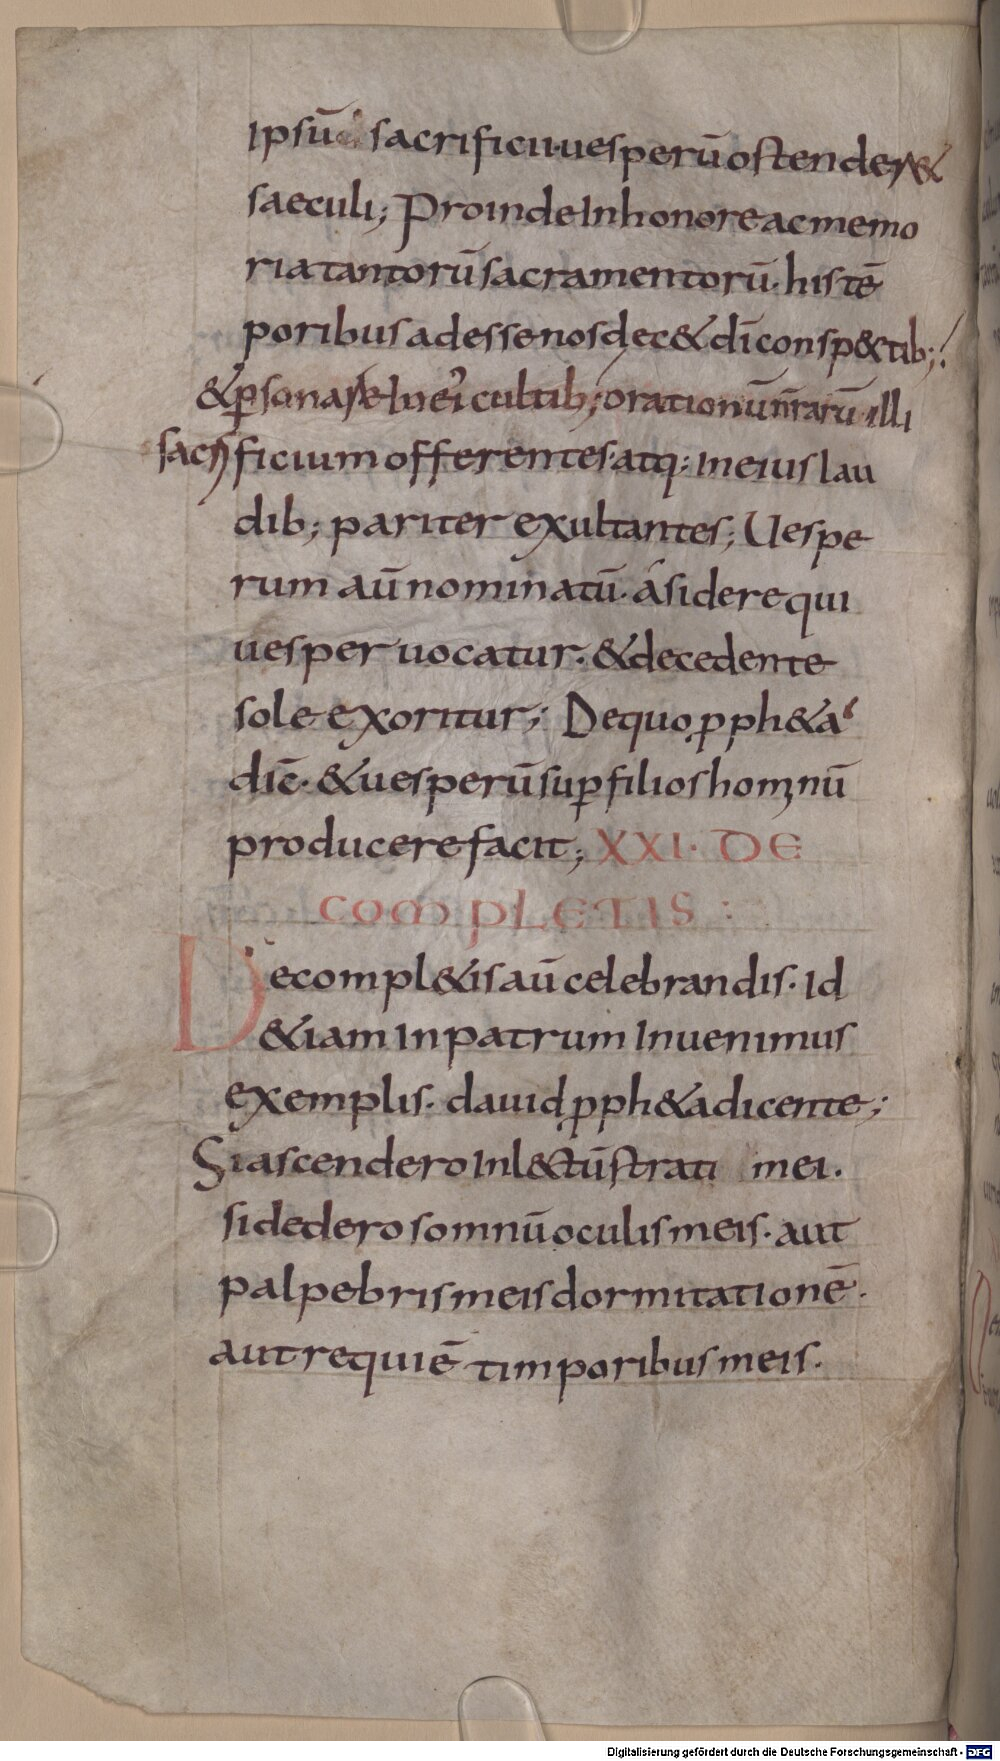 ipsū sacrificii uesperū ostender&
saeculi; Proinde In honore ac memo
ria tantorū sacramentorū. his tē
poribus adesse nos dec& dī consp&tib;;
& psonare In ei cultib; orationū nr̄arū illi
sacrificium offerentes. atq: in eius lau
dib; pariter exultantes; Uespe
rum aū nominatū. a sidere qui
uesper uocatur. & decedente
sole exoritur; De quo pph&a
dic̄. & uesperū sup filios hominū
producere facit; XXI. DE
COMPLETIS :
De compl&is aū celebrandis. Id
&iam In patrum Inuenimus
exemplis. dauid pph&a dicente;
Si ascendero In l&tū strati mei.
si dedero somnū oculis meis. aut
palpebris meis dormitationē.
aut requiē timporibus meis.
Digitalisierung gefördert durch die Deutsche Forschungsgemeinschaft - DFG